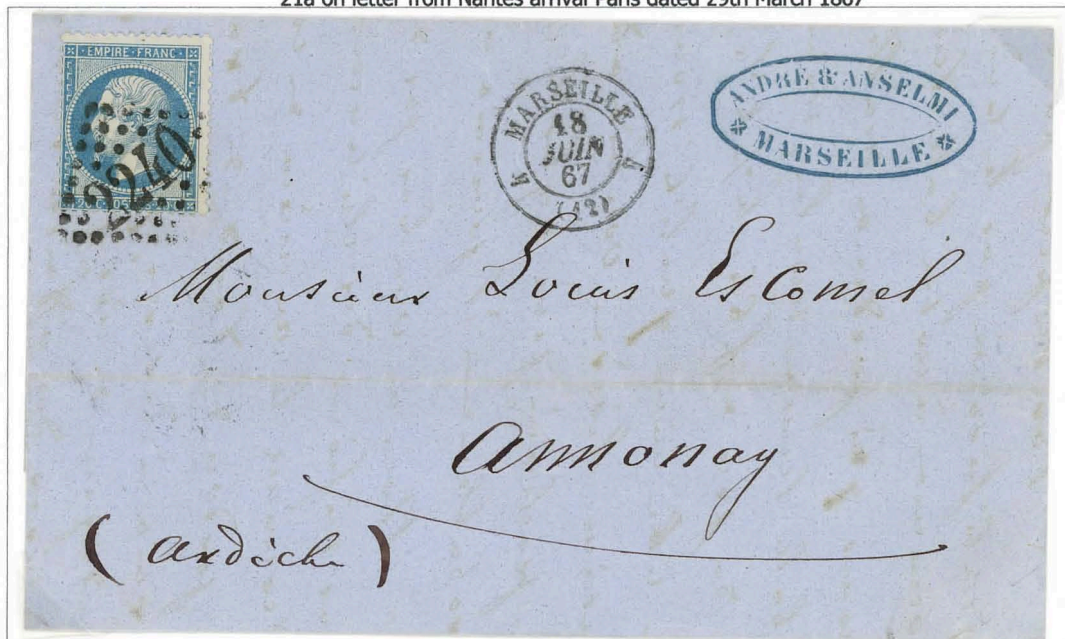 21a on letter from Nantes arrival Paris dated 29th March 1867
EMPIRE · FRANC ·
2240
MARSEILLE
18
JUIN
67
(12)
ANDRÉ & ANSELMI
MARSEILLE
Monsieur Louis Escomel
Annonay
(Ardèche)